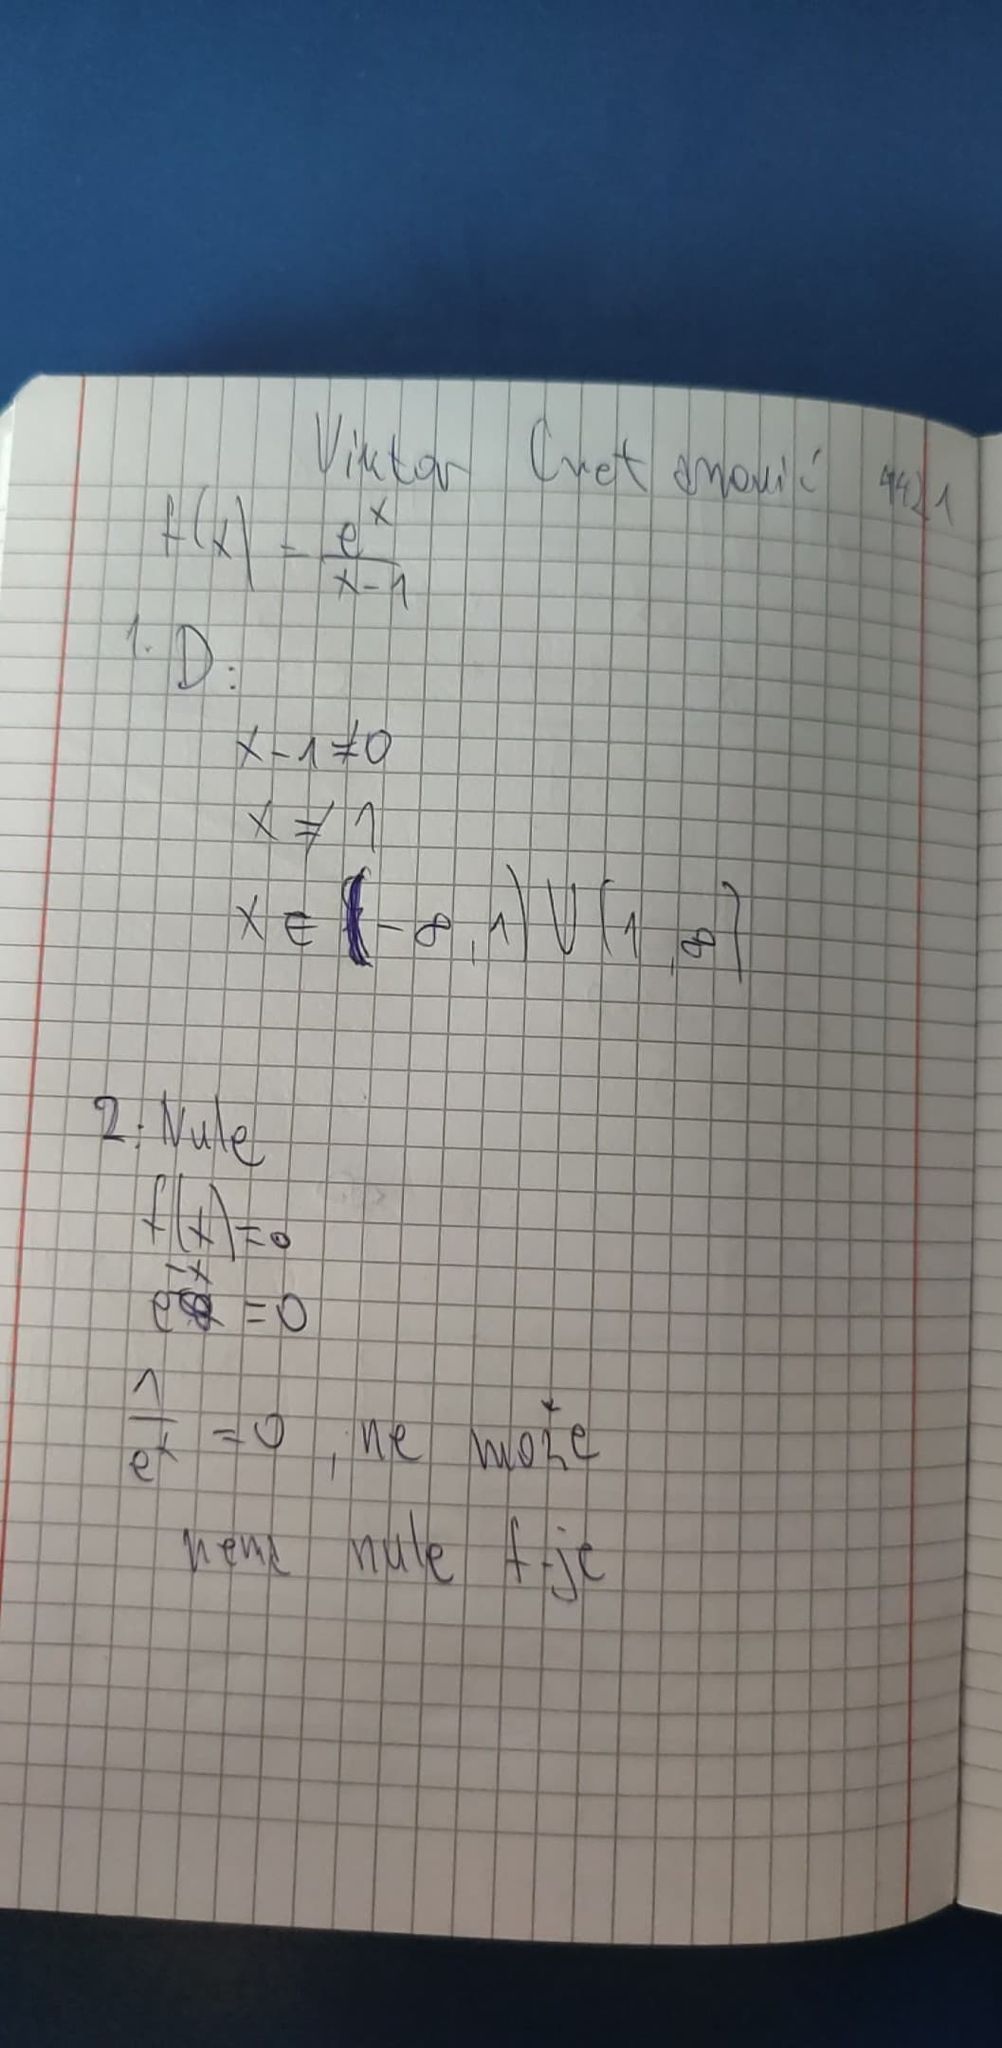 Viktor Cvetanović 4421
f(x) = e^x / x-1
1. D:
x-1≠0
x ≠ 1
x ∈ (-∞,1) ∪ (1,∞)
2. Nule
f(x)=0
e^-x =0
1/e^x =0, ne može
nema nule f-je